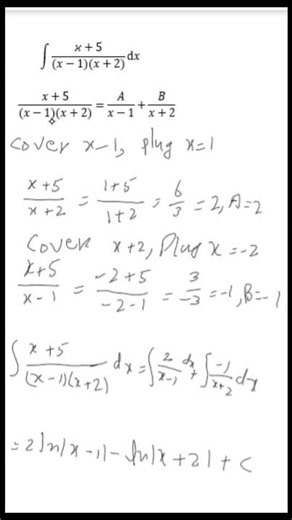 ∫ x+5 / (x−1)(x+2) dx
x+5 / (x−1)(x+2) = A / x−1 + B / x+2
Cover x−1, plug x=1
x+5 / x+2 = 1+5 / 1+2 = 6/3 = 2, A=2
Cover x+2, Plug x=−2
x+5 / x−1 = −2+5 / −2−1 = 3/−3 = −1, B=−1
∫ x+5 / (x−1)(x+2) dx = ∫ 2 / x−1 dx + ∫ −1 / x+2 dx
= 2 ln|x−1| − ln|x+2| + C